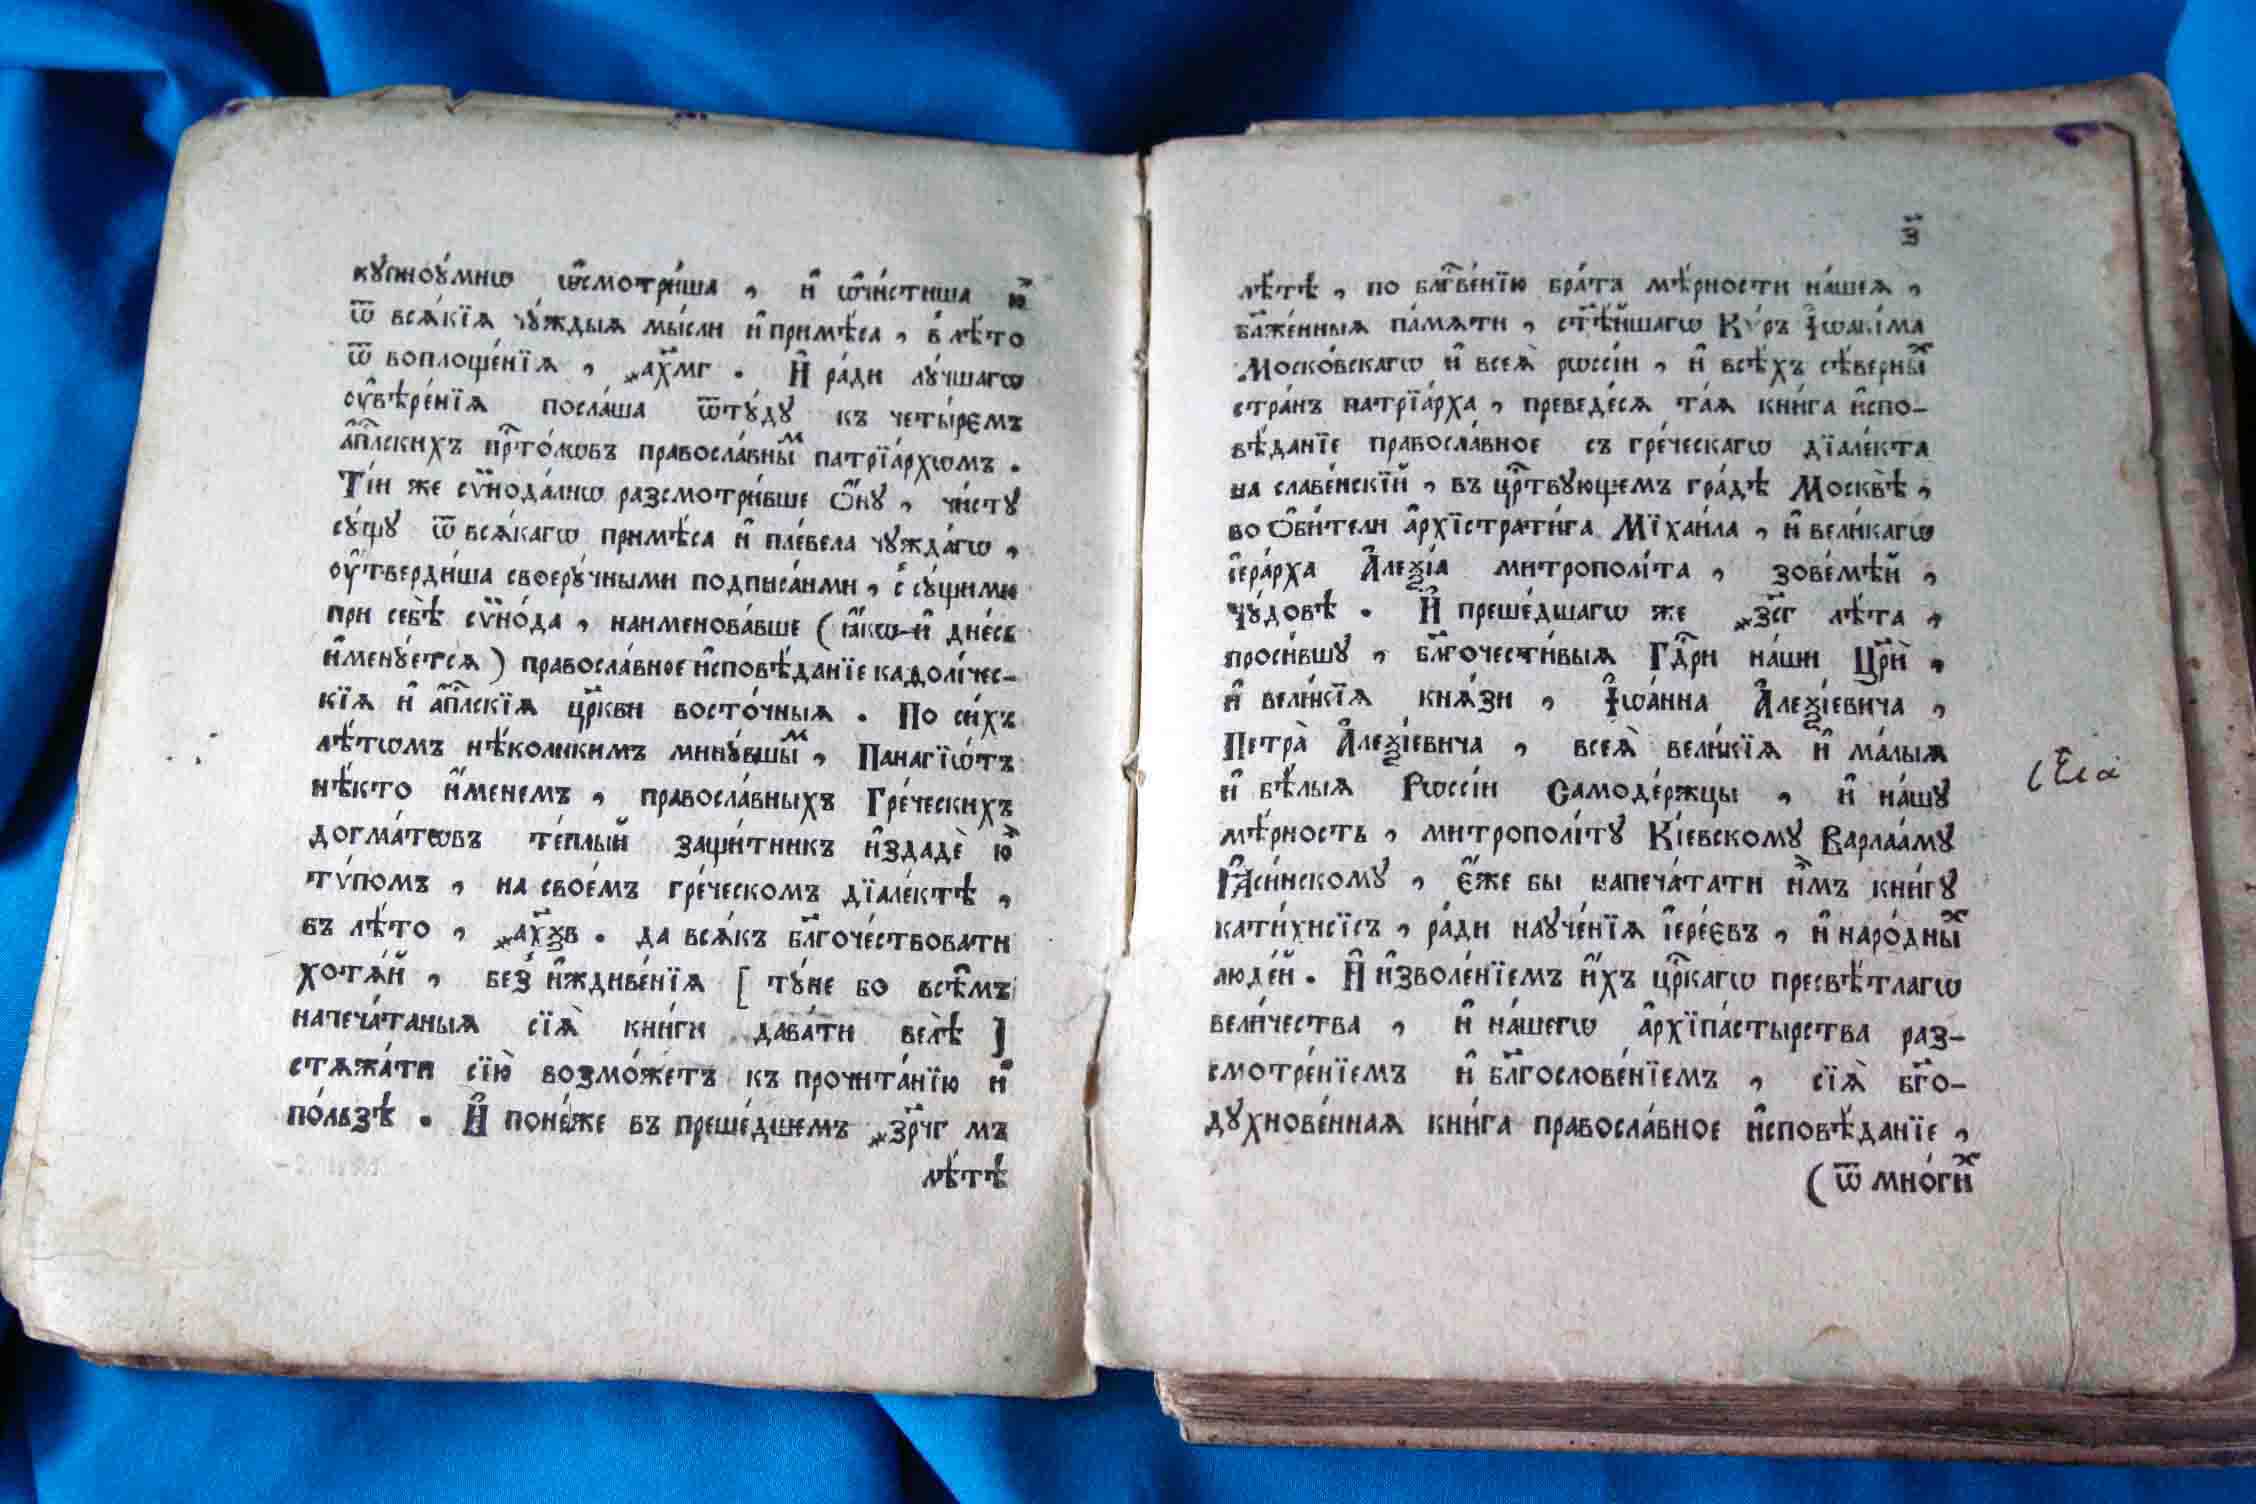 кꙋпноꙋ́мнѡ ѡ҆смотри́ша , и҆ ѡ҆чи́стиша ю҆̀
ѿ всѧ́кїѧ чꙋ́ждыѧ мы́сли и҆ примѣ́са , в̾ лѣ́то
ѿ воплоще́нїѧ , ҂ахмг҃ . И҆ ра́ди лꙋ́чшагѡ
ᲂу҆вѣре́нїѧ посла́ша ѿтꙋ́дꙋ къ четы́рєм
а҆пⷭ҇лскихъ прⷭ҇то́лѡвъ правосла́вныⷨ патрїа́рхѡмъ .
Ті́и же сѷнода́лнѡ разсмотри́вше ѻ҆́нꙋ , чи́стꙋ
сꙋ́щꙋ ѿ всѧ́кагѡ примѣ́са и҆ пле́вела чꙋжда́гѡ ,
ᲂу҆тверди́ша своерꙋ́чными подписа́нми , с̾ сꙋ́щими
при себѣ̀ сѷно́да , наименова́вше ( ꙗ҆́кѡ и҆ дне́сь
и҆менꙋ́етсѧ ) правосла́вное и҆сповѣ́данїе каѳолі́чес-
кїѧ и҆ а҆пⷭ҇лскїѧ цр҃кви восто́чныѧ . По си́хъ
лѣ́тѡмъ нѣ́коликимъ минꙋ́вшыⷨ , Панагїѡ́тъ
нѣ́кто и҆́менемъ , правосла́вныхъ Гре́ческихъ
догма́тѡвъ те́плый защи́тникъ и҆здадѐ ю҆̀
тѵ́помъ , на свое́мъ гре́ческомъ дїале́ктѣ ,
въ лѣ́то , ҂ахѯв҃ . да всѧ́къ бл҃гоче́ствовати
хотѧ́й , без̾ и҆ждиве́нїѧ [ тꙋ́не бо всѣ̑мъ
напеча́таныѧ сїѧ̀ кни́ги дава́ти велѣ̀ ]
стѧжа́ти сїю̀ возмо́жетъ къ прочита́нїю и҆
по́льзѣ . И҆ поне́же въ преше́дшемъ ҂зрч҃г мъ
лѣ́тѣ
з҃
лѣ́тѣ , по блгⷭ҇ве́нїю бра́та мѣ́рности на́шеѧ ,
бл҃же́нныѧ па́мѧти , ст҃ѣ́йшагѡ Кѵ́ръ І҆ѡакі́ма
Моско́вскагѡ и҆ всеѧ̀ рѡссі́и , и҆ всѣ́хъ сѣ́верныⷯ
стра́нъ патрїа́рха , преведе́сѧ та́ѧ кни́га и҆спо-
вѣ́данїе правосла́вное съ гре́ческагѡ дїале́кта
на славе́нскїй , въ црⷭ҇твꙋющемъ гра́дѣ Москвѣ̀ ,
во ѻ҆би́тели а҆рхїстрати́га Мїхаи́ла , и҆ вели́кагѡ
і҆ера́рха А҆леѯі́а митрополі́та , зове́мѣй ,
Чꙋ́довѣ . И҆ преше́дшагѡ же ҂зс҃г лѣ́та ,
проси́вшꙋ , бл҃гочести́выѧ Гдⷭ҇ри на́ши Цр҃и̑ ,
и҆ вели́кїѧ кнѧ́зи , І҆ѡа́нна А҆леѯі́евича ,
Петра̀ А҆леѯі́евича , всеѧ̀ вели́кїѧ и҆ ма́лыѧ
и҆ бѣ́лыѧ Рѡссі́и Самоде́ржцы , и҆ на́шꙋ
мѣ́рность , митрополі́тꙋ Кі́евскомꙋ Варлаа́мꙋ
Ꙗ҆си́нскомꙋ , є҆́же бы напеча́тати и҆̀мъ кни́гꙋ
кати́хисїсъ , ра́ди наꙋче́нїѧ і҆ере́євъ , и҆ наро́дныⷯ
люде́й . И҆ и҆зволе́нїемъ и҆́хъ црⷭ҇кагѡ пресвѣ́тлагѡ
вели́чества , и҆ на́шегѡ а҆рхїпа́стырства раз-
смотре́нїемъ и҆ бл҃гослове́нїемъ , сїѧ̀ бг҃о-
дꙋхнове́ннаѧ кни́га правосла́вное и҆сповѣ́данїе ,
( ѿ мно́гиⷯ